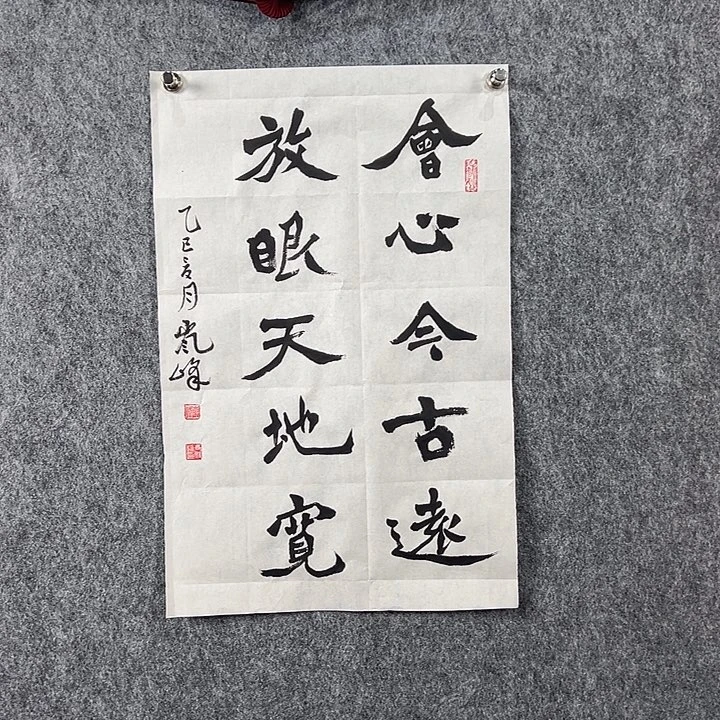 會心今古遠
放眼天地寬
乙巳亥月嵐峰